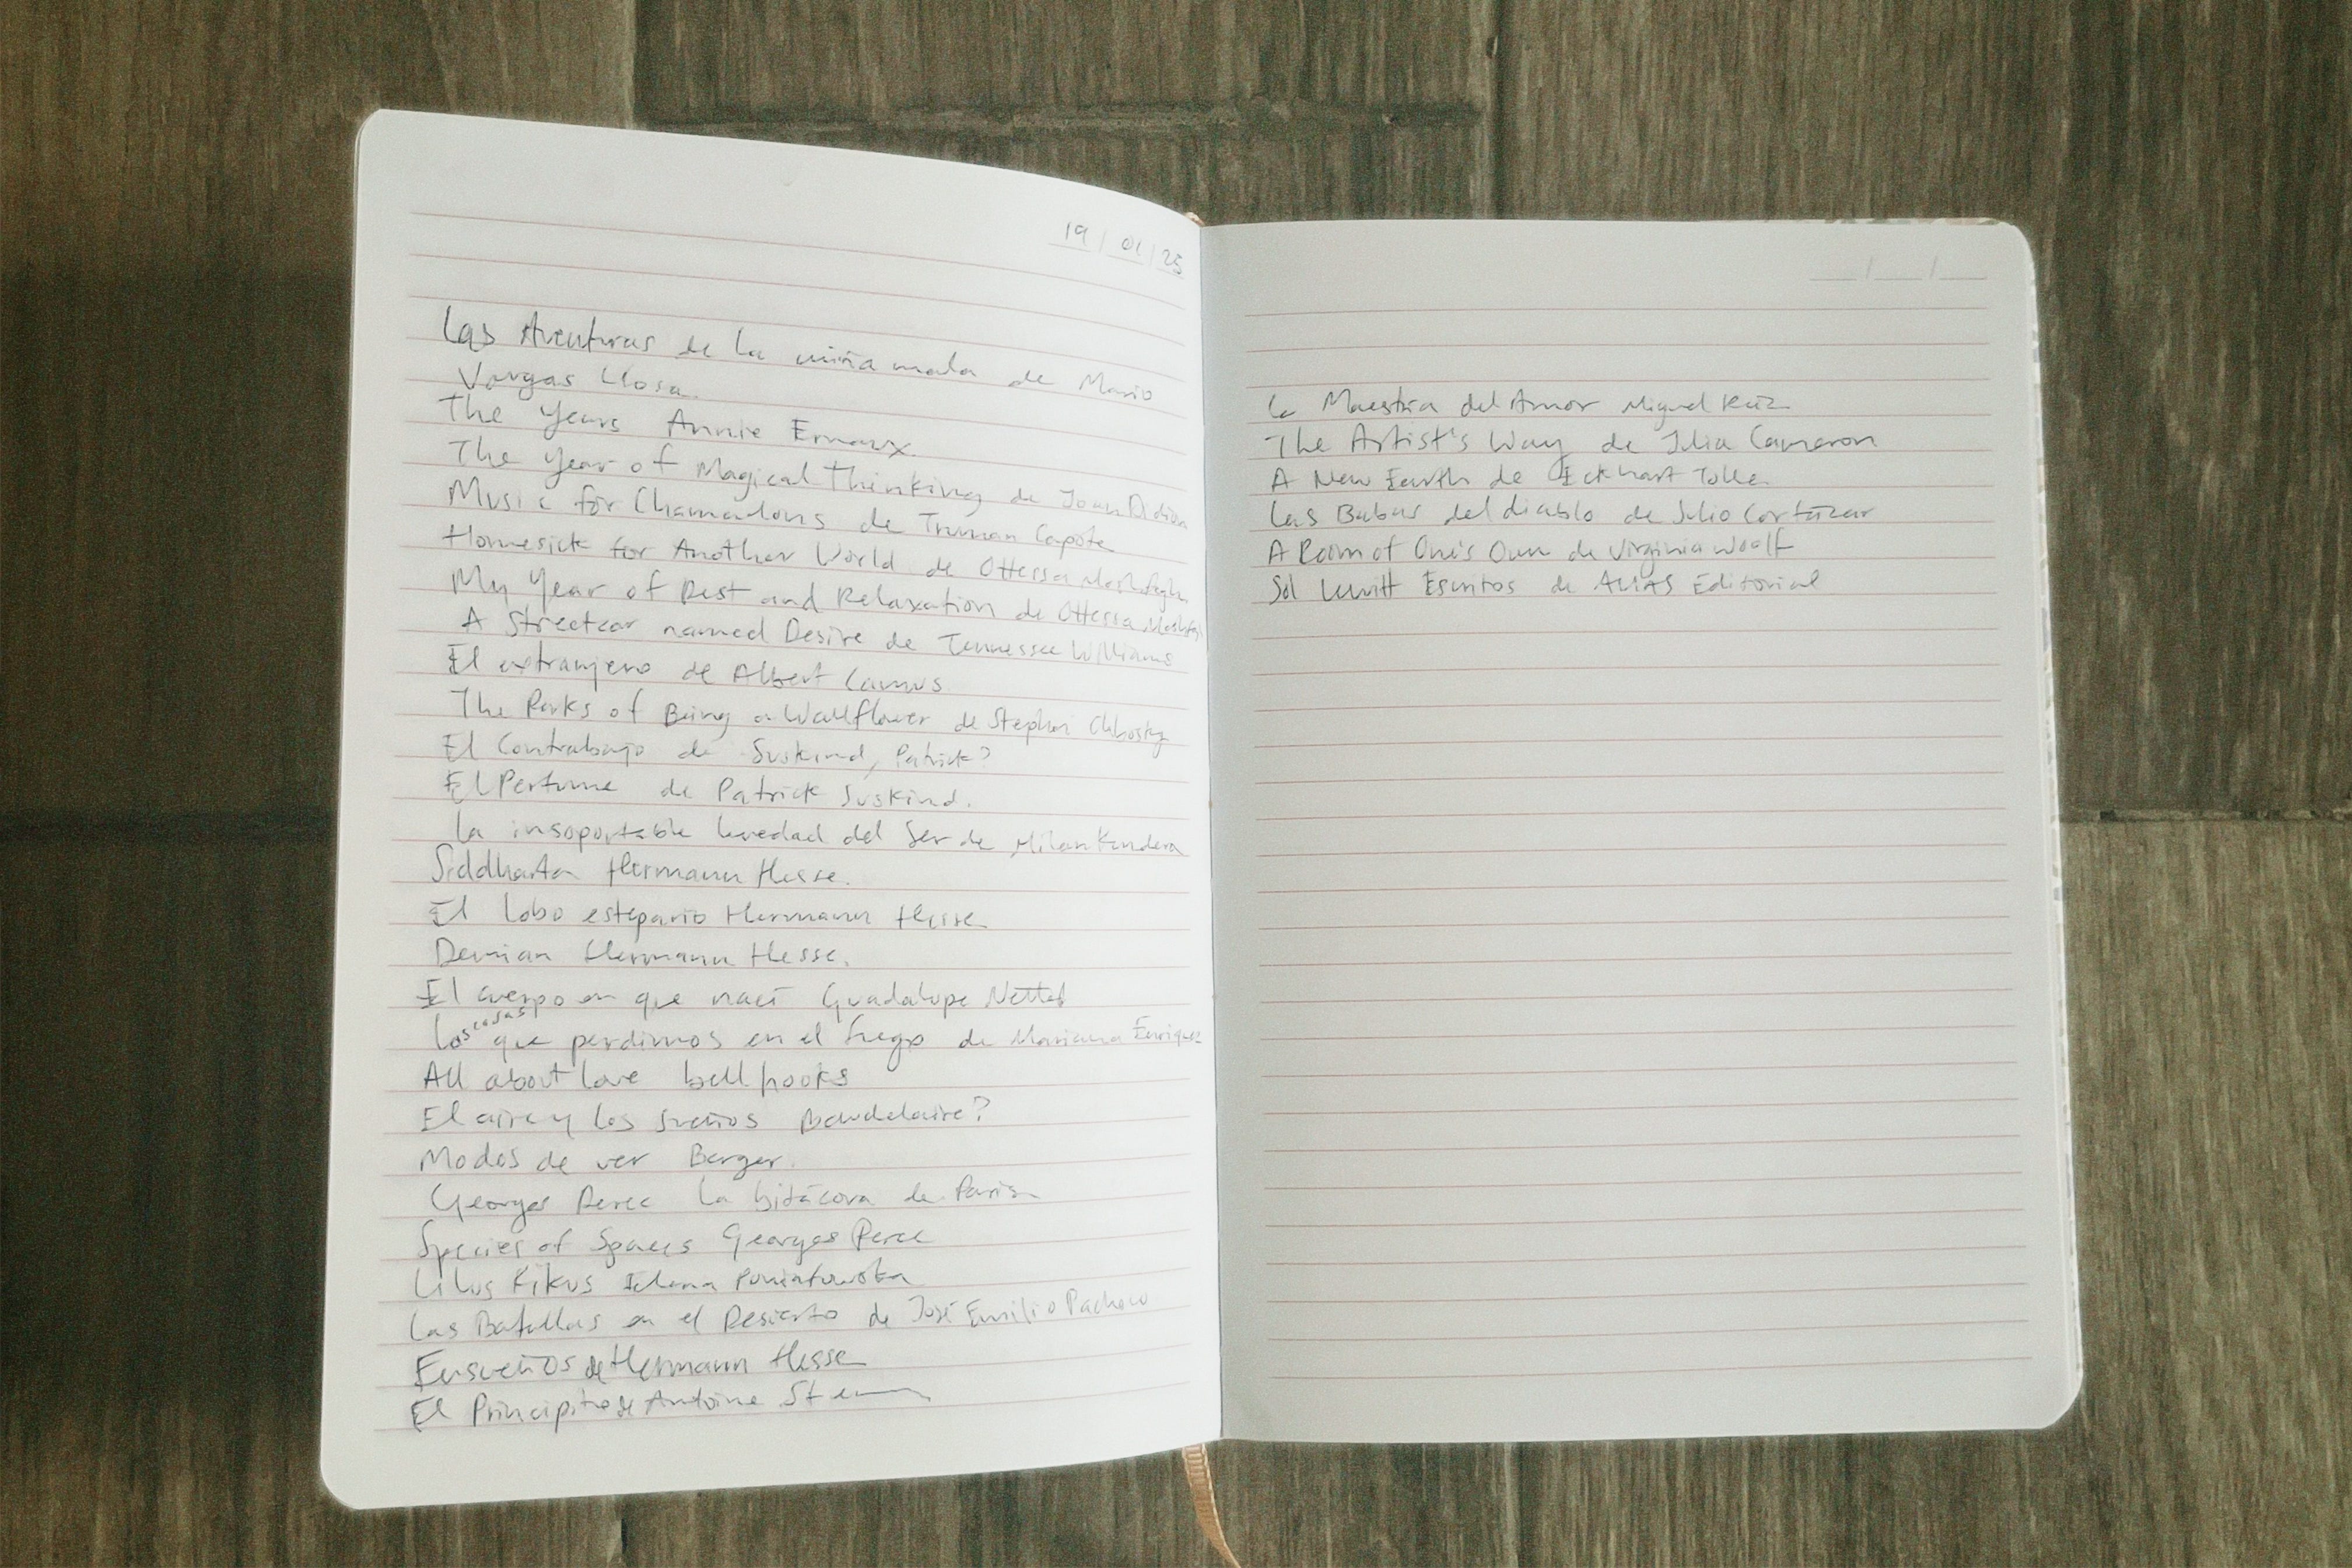 19 / 01 / 25
Las Aventuras de la niña mala de Mario
Vargas Llosa.
The Years Annie Ernaux.
The Year of Magical Thinking de Joan Didion
Music for Chamaleons de Truman Capote
Homesick for Another World de Ottessa Moshfegh
My Year of Rest and Relaxation de Ottessa Moshfegh
A Streetcar named Desire de Tennessee Williams
El extranjero de Albert Camus
The Perks of Being a Wallflower de Stephen Chbosky
El Contrabajo de Suskind, Patrick?
El Perfume de Patrick Suskind.
La insoportable levedad del Ser de Milan Kundera
Siddharta Hermann Hesse.
El lobo estepario Hermann Hesse
Demian Hermann Hesse.
El cuerpo en que nací Guadalupe Nettel
Las cosas que perdimos en el fuego de Mariana Enriquez
All about love bell hooks
El aire y los sueños Baudelaire?
Modos de ver Berger.
Georges Perec La bitácora de Paris
Species of Spaces Georges Perec
Lilus Kikus Elena Poniatowska
Las Batallas en el Desierto de José Emilio Pacheco
Ensueños de Hermann Hesse
El Principito de Antoine St
La Maestria del Amor Miguel Ruiz
The Artist's Way de Julia Cameron
A New Earth de Eckhart Tolle
Las Babas del diablo de Julio Cortázar
A Room of One's Own de Virginia Woolf
Sol Lewitt Escritos de ALIAS Editorial